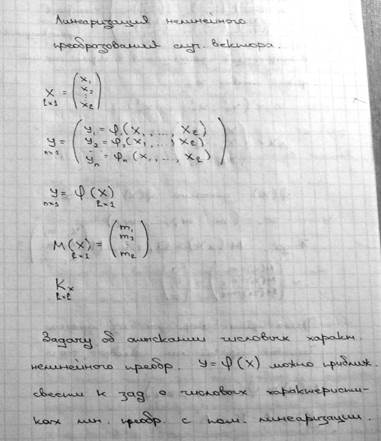 Линеаризация нелинейного
преобразования случ. вектора.
X = (x₁
ℓ×1 x₂
⋮
xℓ)
y = (y₁ = φ₁(x₁, ..., xℓ)
n×1 y₂ = φ₂(x₁, ..., xℓ)
yₙ = φₙ(x₁, ..., xℓ))
y = φ(x)
n×1 ℓ×1
M(x) = (m₁
ℓ×1 m₂
⋮
mℓ)
Kₓ
ℓ×ℓ
Задачу об отыскании числовых характ.
нелинейного преобр. y = φ(x) можно приближ.
свести к зад. о числовых характеристи-
ках лин. преобр. с пом. линеаризации.